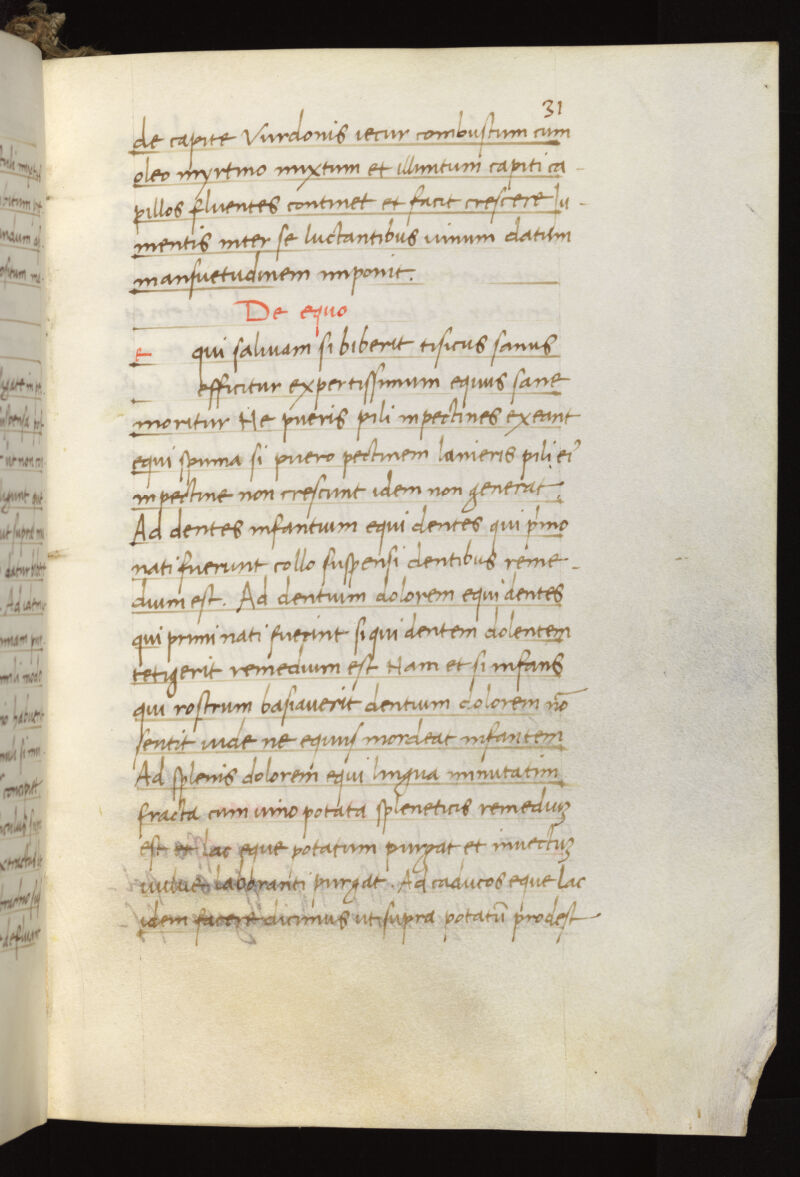 31
de capite Vurdonis iecur combustum cum
oleo myrtino mixtum et illinitum capiti ca-
pillos fluentes continet et facit crescere Iu-
mentis inter se luctantibus uinum datum
mansuetudinem imponit.
De equo
E qui saliuam si biberit tisicus sanus
efficitur expertissimum equus sane
moritur Ne pueris pili inpectines exeant
equi spuma si puero pectinem lanieris pili ei'
inpectine non crescunt idem non generat.
Ad dentes infantium equi dentes qui p̄mo
nati fuerunt collo suspensi dentibus reme-
dium est. Ad dentium dolorem equi dentes
qui primi nati fuerint si qui dentem dolentem
tetigerit remedium est Nam et si infans
qui rostrum basiauerit dentium dolorem nō
sentit inde ne equus mordeat infantem
Ad splenis dolorem equi lingua minutatim
fracta cum uino potata spleneticis remediuꝫ
est et lac eque potatum purgat et inuectuꝫ
uuluę laboranti purgat. Ad caducos eque lac
idem facere dicimus ut supra potatū prodest